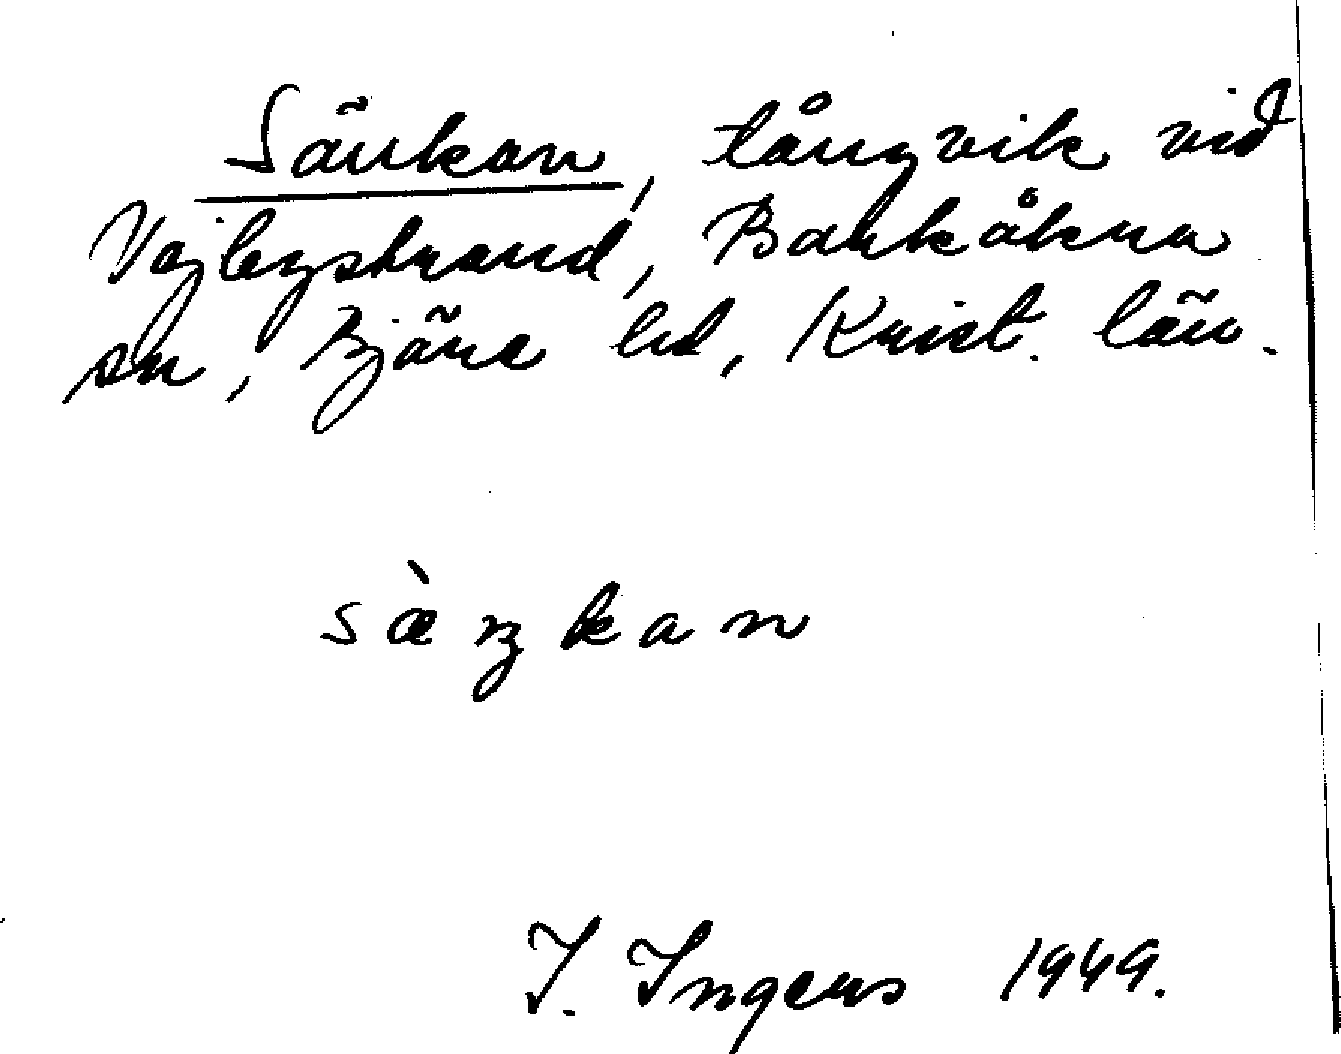 Sänkan, tångvik vid
Vejbystrand, Barkåkra
sn, Bjäre hd, Krist. län.
sàŋkan
I. Ingers 1949.